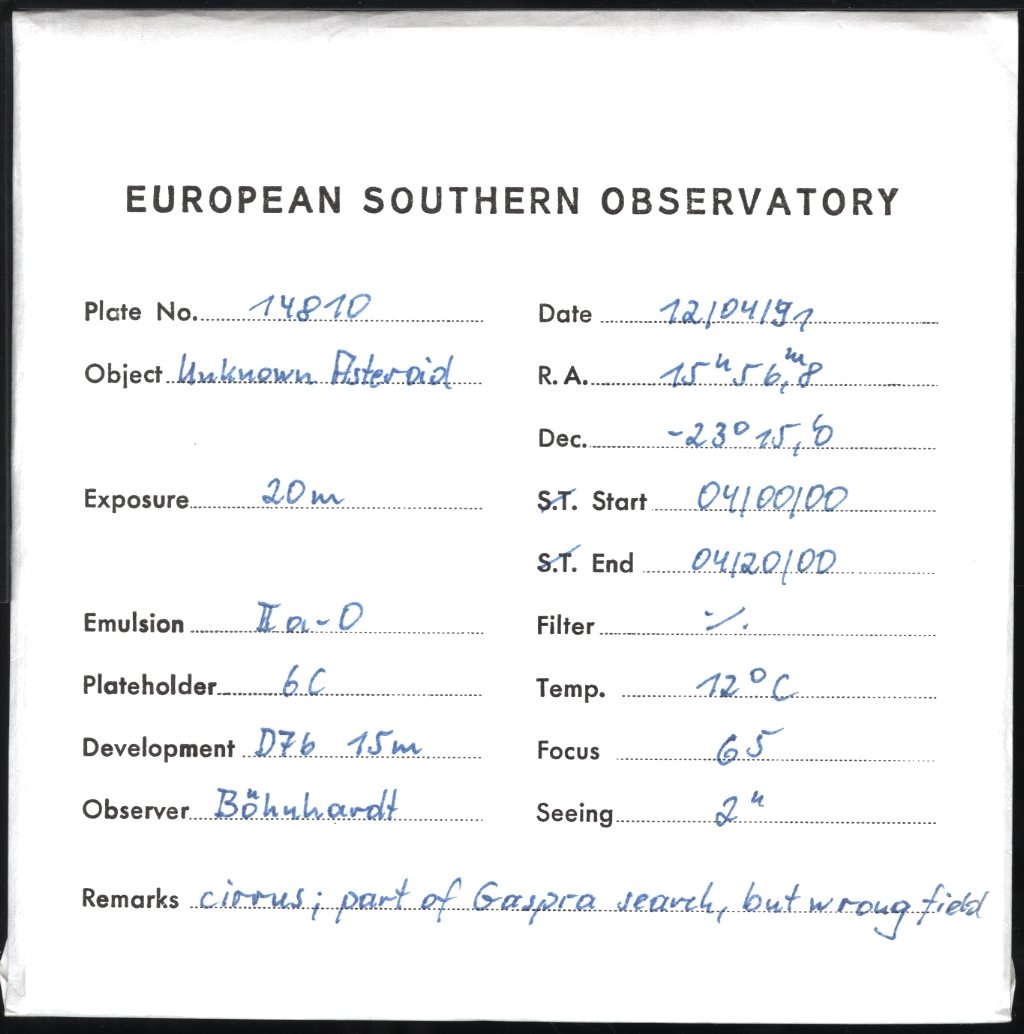 EUROPEAN SOUTHERN OBSERVATORY
Plate No. 14810 Date 12/04/91
Object Unknown Asteroid R.A. 15h56,m8
Dec. -23° 15,6
Exposure 20m S.T. Start 04/00/00
S.T. End 04/20/00
Emulsion IIa-O Filter ./.
Plateholder 6C Temp. 12°C
Development D76 15m Focus 65
Observer Böhnhardt Seeing 2"
Remarks cirrus; part of Gaspra search, but wrong field